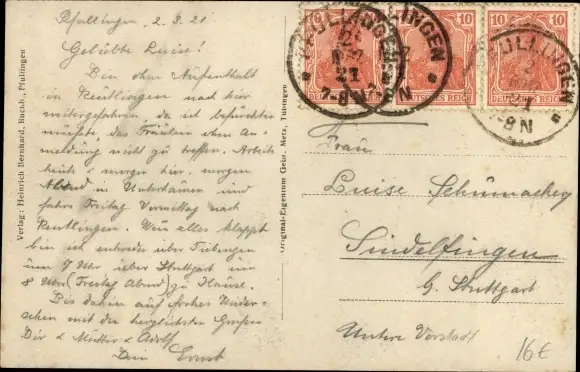 Pfullingen, 2.3.21
Geliebte Luise!
Bin ohne Aufenthalt
in Reutlingen nach hier
weitergefahren, da ich befürchten
müsste, das Fräulein ohne An-
meldung nicht zu treffen. Arbeite
heute & morgen hier morgen
Abend in Unterhausen und
fahre Freitag Vormittag nach
Reutlingen. Wenn alles klappt
bin ich entweder über Tübingen
um 7 Uhr über Stuttgart um
8 Uhr (Freitag Abend) zu Hause.
Bis dahin auf frohes Wieder-
sehen mit den herzlichsten Grüßen
Dir & Mutter & Adolf
Dein Ernst
Verlag: Heinrich Bernhard, Buchh., Pfullingen
Original-Eigentum Gebr. Metz, Tübingen
PFULLINGEN
21
7-8N
10 10
DEUTSCHES REICH
Frau
Luise Schumacher
Sindelfingen
b. Stuttgart
Untere Vorstadt
16€